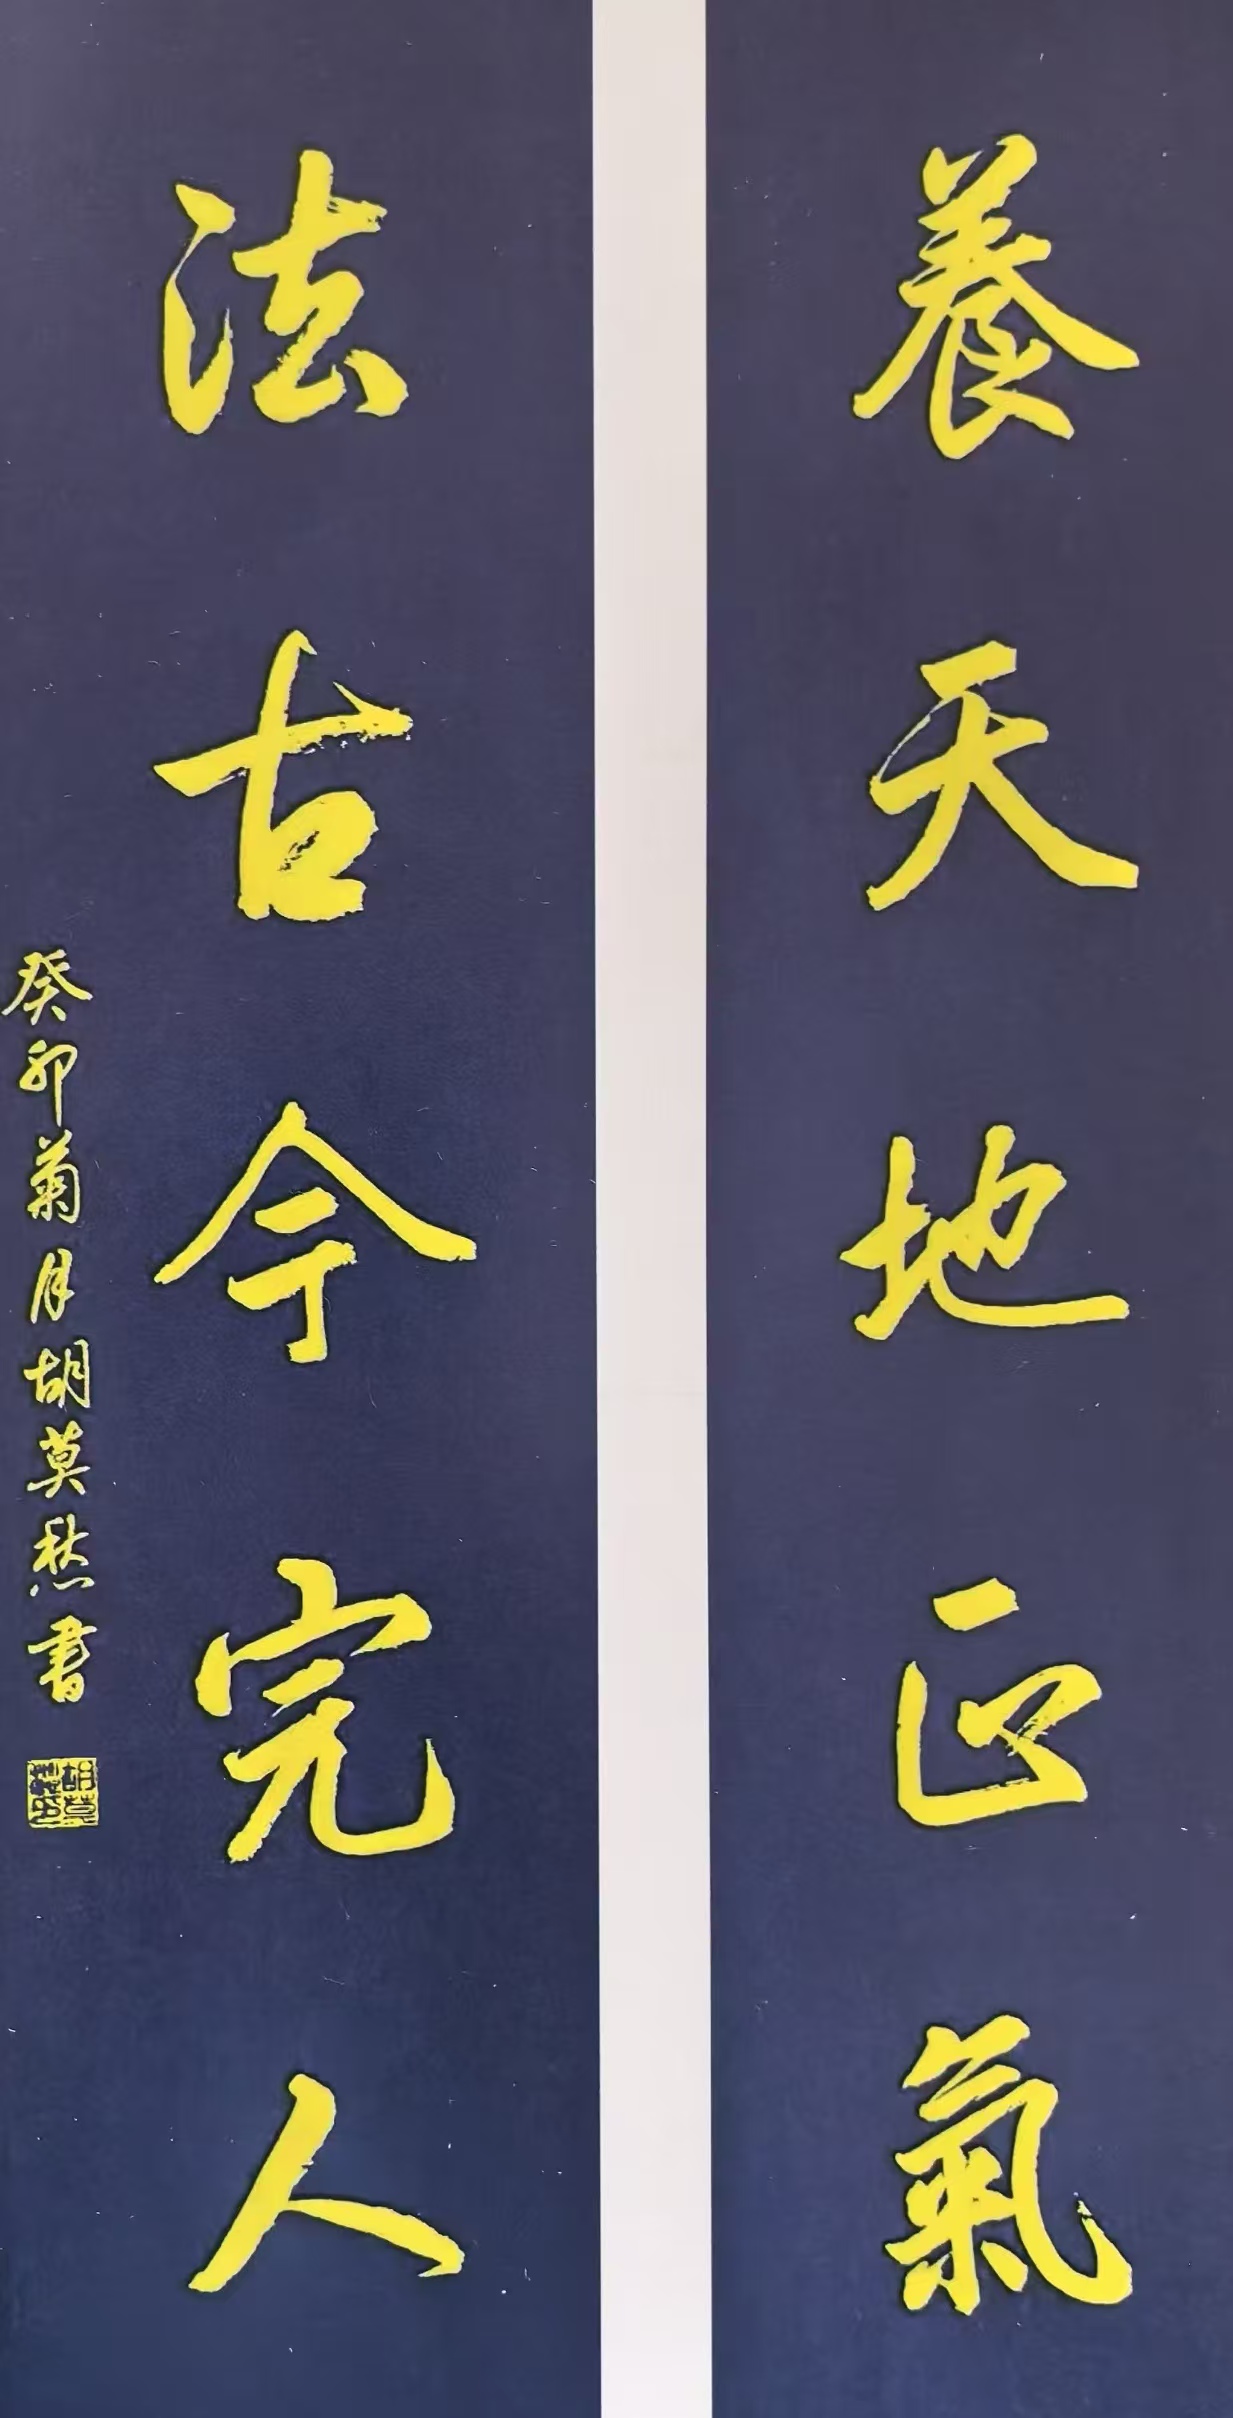 養天地正氣
法古今完人
癸卯菊月胡莫愁書